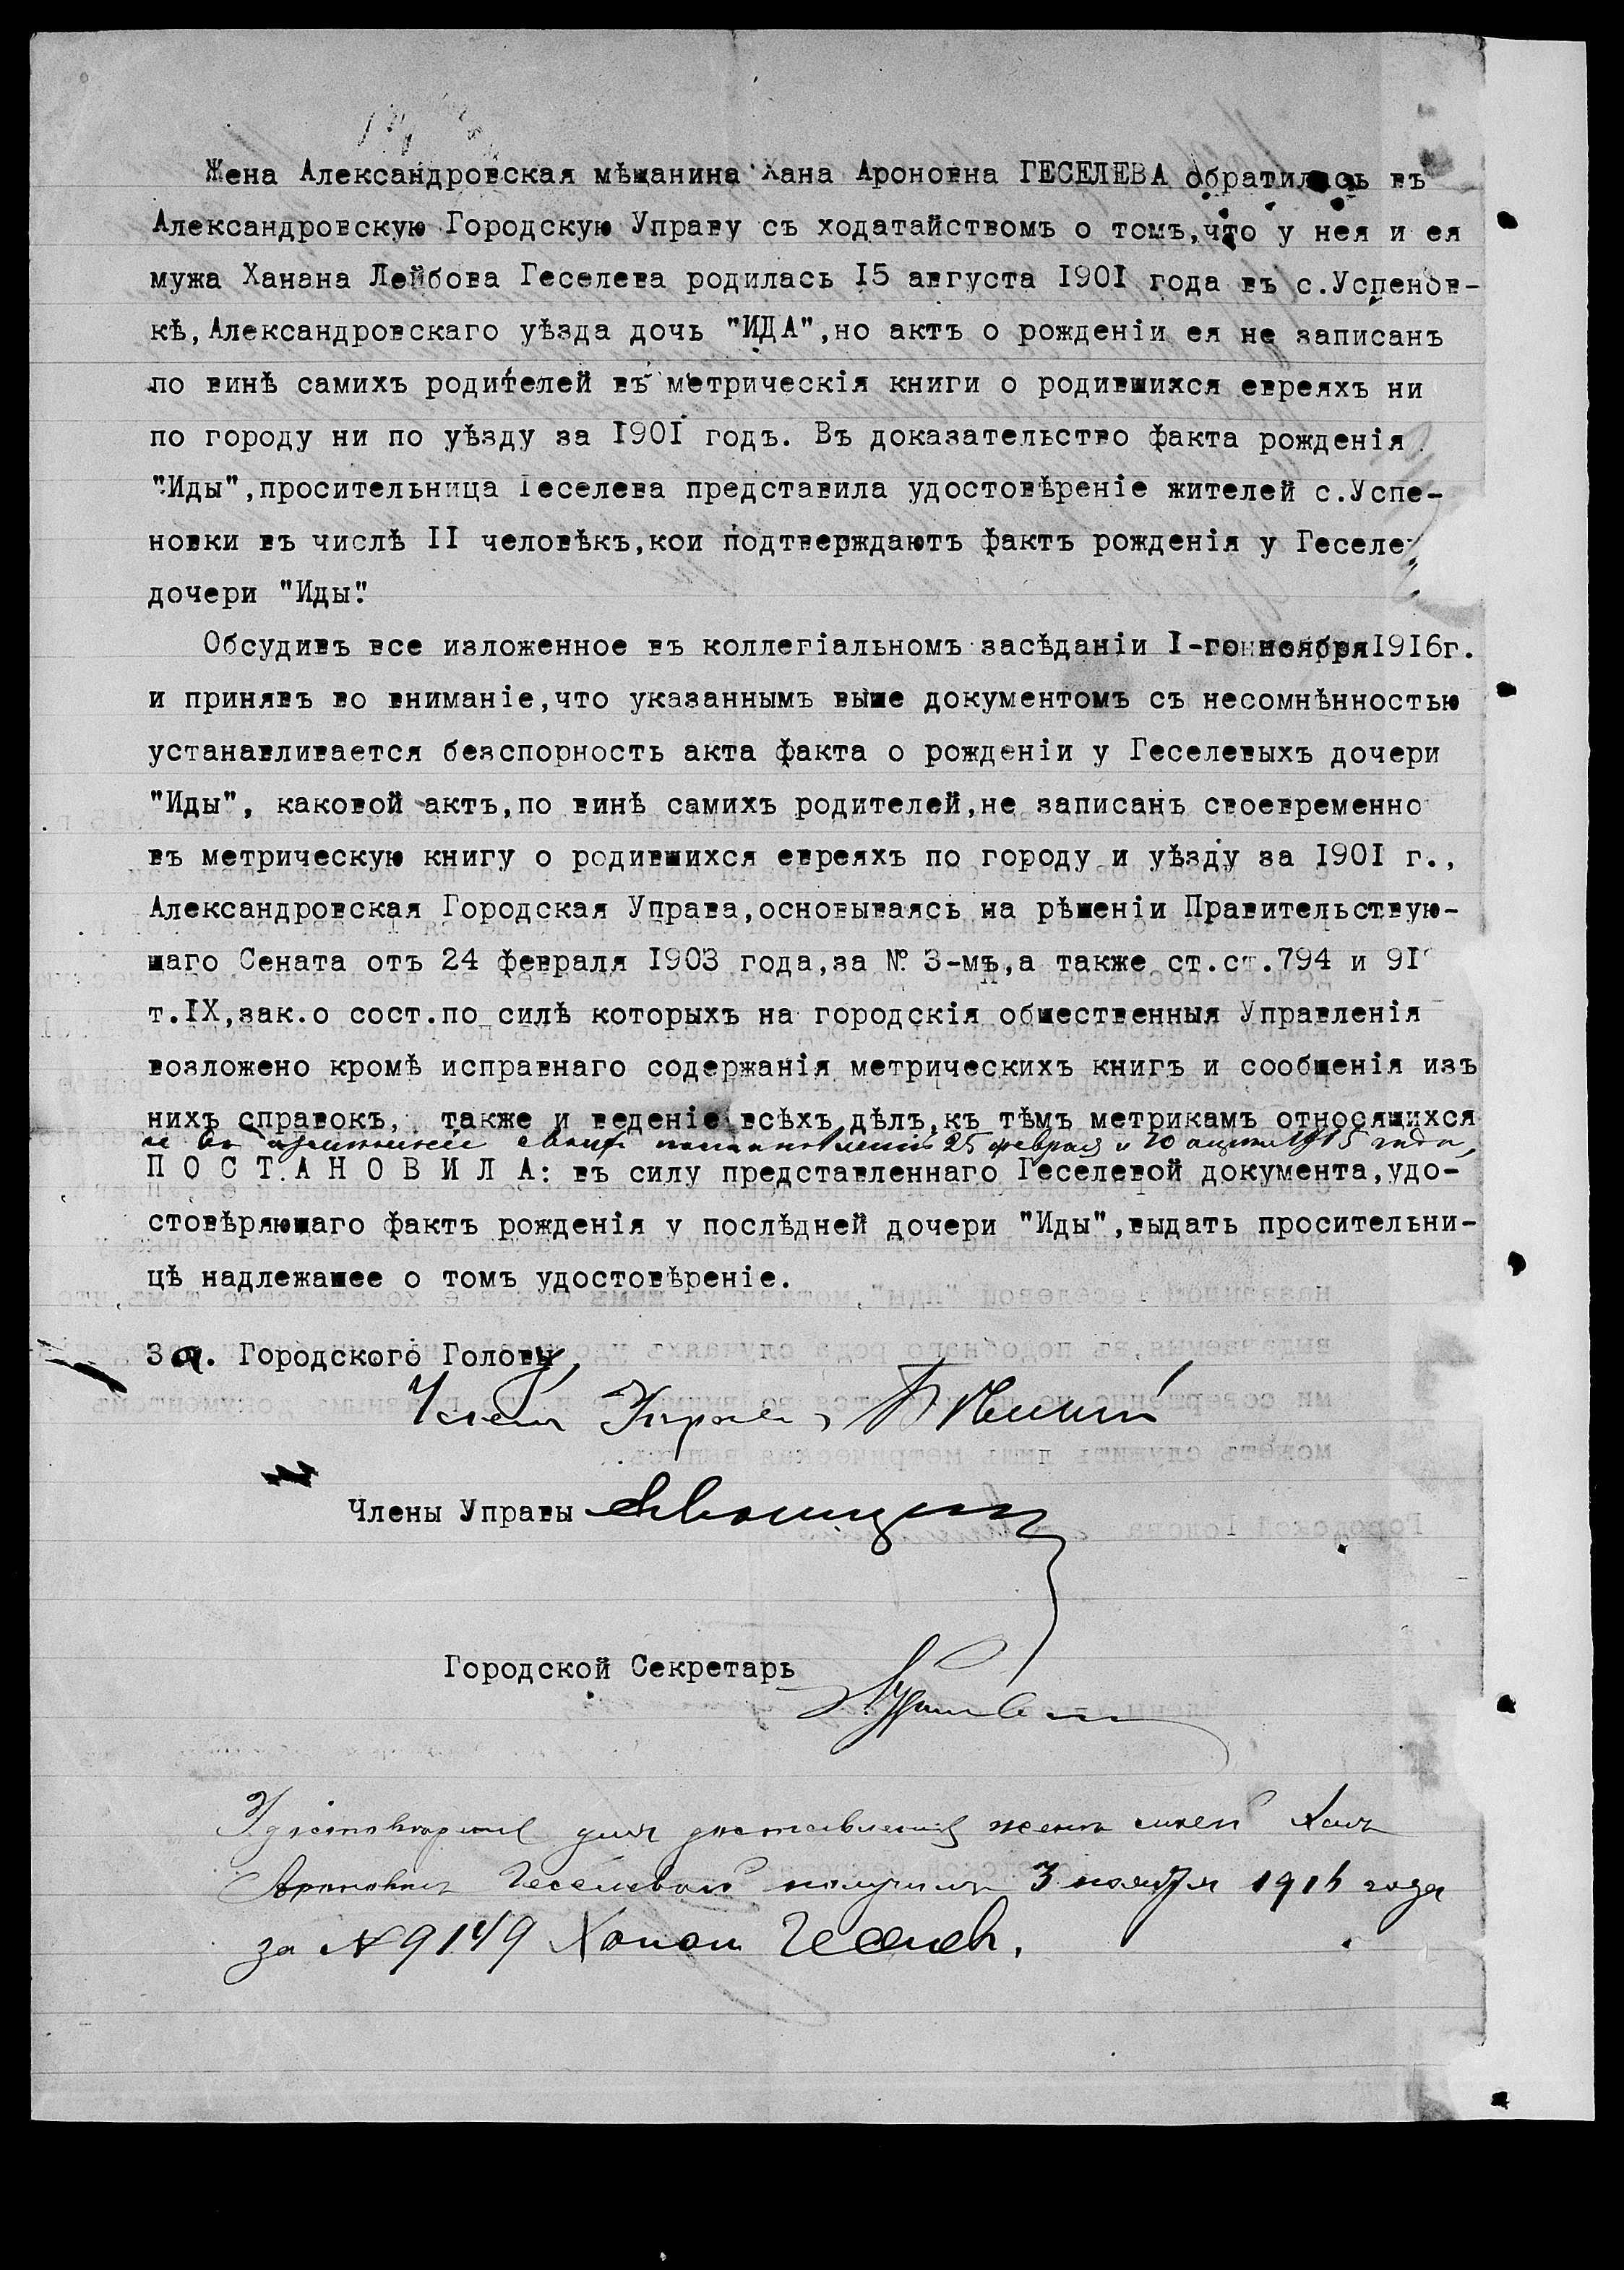 Жена Александровская мѣщанина Хана Ароновна ГЕСЕЛЕВА обратилась въ
Александровскую Городскую Управу съ ходатайствомъ о томъ,что у нея и ея
мужа Ханана Лейбова Геселева родилась 15 августа 1901 года въ с.Успенов-
кѣ,Александровскаго уѣзда дочь "ИДА",но актъ о рожденіи ея не записанъ
по винѣ самихъ родителей въ метрическія книги о родившихся евреяхъ ни
по городу ни по уѣзду за 1901 годъ. Въ доказательство факта рожденія
"Иды",просительница Геселева представила удостовѣреніе жителей с.Успе-
новки въ числѣ II человѣкъ,кои подтверждаютъ фактъ рожденія у Геселе
дочери "Иды".
Обсудивъ все изложенное въ коллегіальномъ засѣданіи I-го ноября 1916г.
и принявъ во вниманіе,что указаннымъ выше документомъ съ несомнѣнностью
устанавливается безспорность акта факта о рожденіи у Геселевыхъ дочери
"Иды", каковой актъ,по винѣ самихъ родителей,не записанъ своевременно
въ метрическую книгу о родившихся евреяхъ по городу и уѣзду за 1901 г.,
Александровская Городская Управа,основываясь на рѣшеніи Правительствую-
шаго Сената отъ 24 февраля 1903 года,за № 3-мъ,а также ст.ст.794 и 91
т.IX,зак.о сост.по силѣ которыхъ на городскія обшественныя Управленія
возложено кромѣ исправнаго содержанія метрическихъ книгъ и сообшенія изъ
нихъ справокъ, также и веденіе всѣхъ дѣлъ,къ тѣмъ метрикамъ относящихся
и въ измѣненіе своихъ постановленій 25 февраля и 20 апрѣля 1915 года,
П О С Т А Н О В И Л А: въ силу представленнаго Геселевой документа,удо-
стовѣряюшаго фактъ рожденія у послѣдней дочери "Иды",выдать просительни-
цѣ надлежашее о томъ удостовѣреніе.
За. Городского Головы,
Членъ Управы,
Члены Управы
Городской Секретарь
Удостовѣреніе для доставленія женѣ моей Ханѣ
Ароновнѣ Геселевой получилъ 3 ноября 1916 года
за № 9149 Ханан Геселевъ.